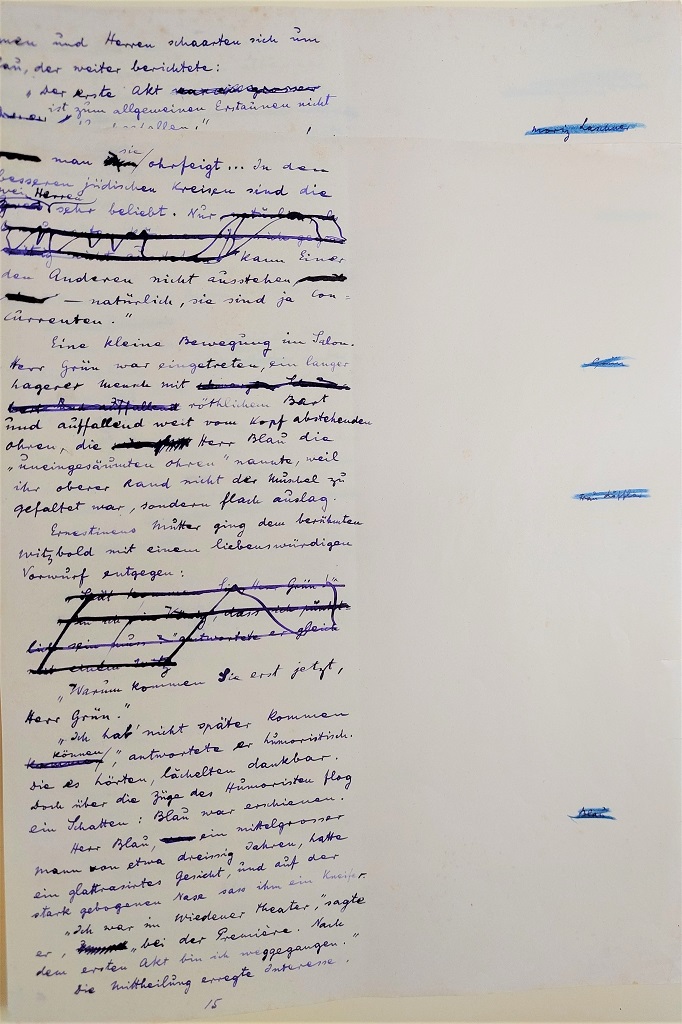 men und Herren schaarten sich um
au, der weiter berichtete:
„Der erste Akt
ist zum allgemeinen Erstaunen nicht
Moriz Laschner
man sie ohrfeigt... In den
besseren jüdischen Kreisen sind die
zwei Herren
sehr beliebt. Nur
kann Einer
den Anderen nicht ausstehen
— natürlich, sie sind ja Con-
currenten."
Eine kleine Bewegung im Salon.
Herr Grün war eingetreten, ein langer
Grün
hagerer Mensch mit
röthlichem Bart
und auffallend weit vom Kopf abstehenden
Ohren, die Herr Blau die
„uneingesäumten Ohren" nannte, weil
ihr oberer Rand nicht der Muschel zu
gefaltet war, sondern flach auslag.
Ernestinens Mutter ging dem berühmten
Witzbold mit einem liebenswürdigen
Vorwurf entgegen:
„Spät kommen Sie, Herr Grün!"
„Bin ich ein König, dass ich pünkt-
lich sein muss?" antwortete er gleich
mit einem Witz
„Warum kommen Sie erst jetzt,
Herr Grün."
„Ich hab' nicht später kommen
können
," antwortete er humoristisch.
Die es hörten, lächelten dankbar.
Doch über die Züge des Humoristen flog
ein Schatten: Blau war erschienen.
Blau
Herr Blau, ein mittelgrosser
Mann von etwa dreissig Jahren, hatte
ein glattrasirtes Gesicht, und auf der
stark gebogenen Nase sass ihm ein Kneifer.
„Ich war im Wiedener Theater," sagte
er, „bei der Première. Nach
dem ersten Akt bin ich weggegangen."
Die Mittheilung erregte Interesse.
15